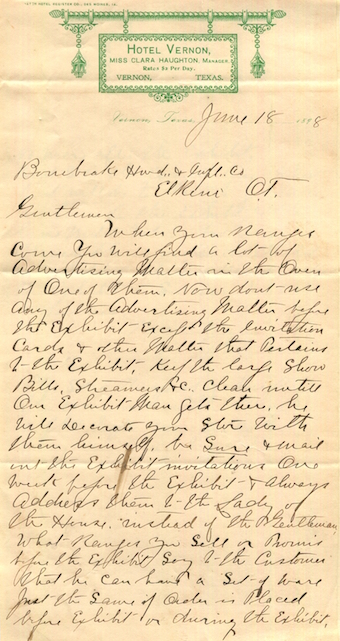 HOTEL VERNON,
MISS CLARA HAUGHTON, MANAGER.
Rates $2 Per Day.
VERNON, TEXAS.
Vernon, Texas, June 18 1898
Bonebrake Hwd. & Impl. Co
El Reno O.T.
Gentlemen
When your Ranges
come you will find a lot of
Advertising Matter in the Oven
of One of them. Now dont use
any of the Advertising Matter before
the Exhibit Except the Invitation
Cards & other Matter that Pertains
to the Exhibit, Keep the large Show
Bills, Streamers &c. Clean untill
Our Exhibit Man gets there, he
will Decorate your Store With
them himself, be Sure & mail
out the Exhibit invitations One
week before the Exhibit & always
Address them to the Lady of
the House, instead of the Gentleman,
What Ranges you Sell or Promis
before the Exhibit Say to the Customer
that he can have a Set of Ware
Just the Same if Order is Placed
before Exhibit or during the Exhibit.